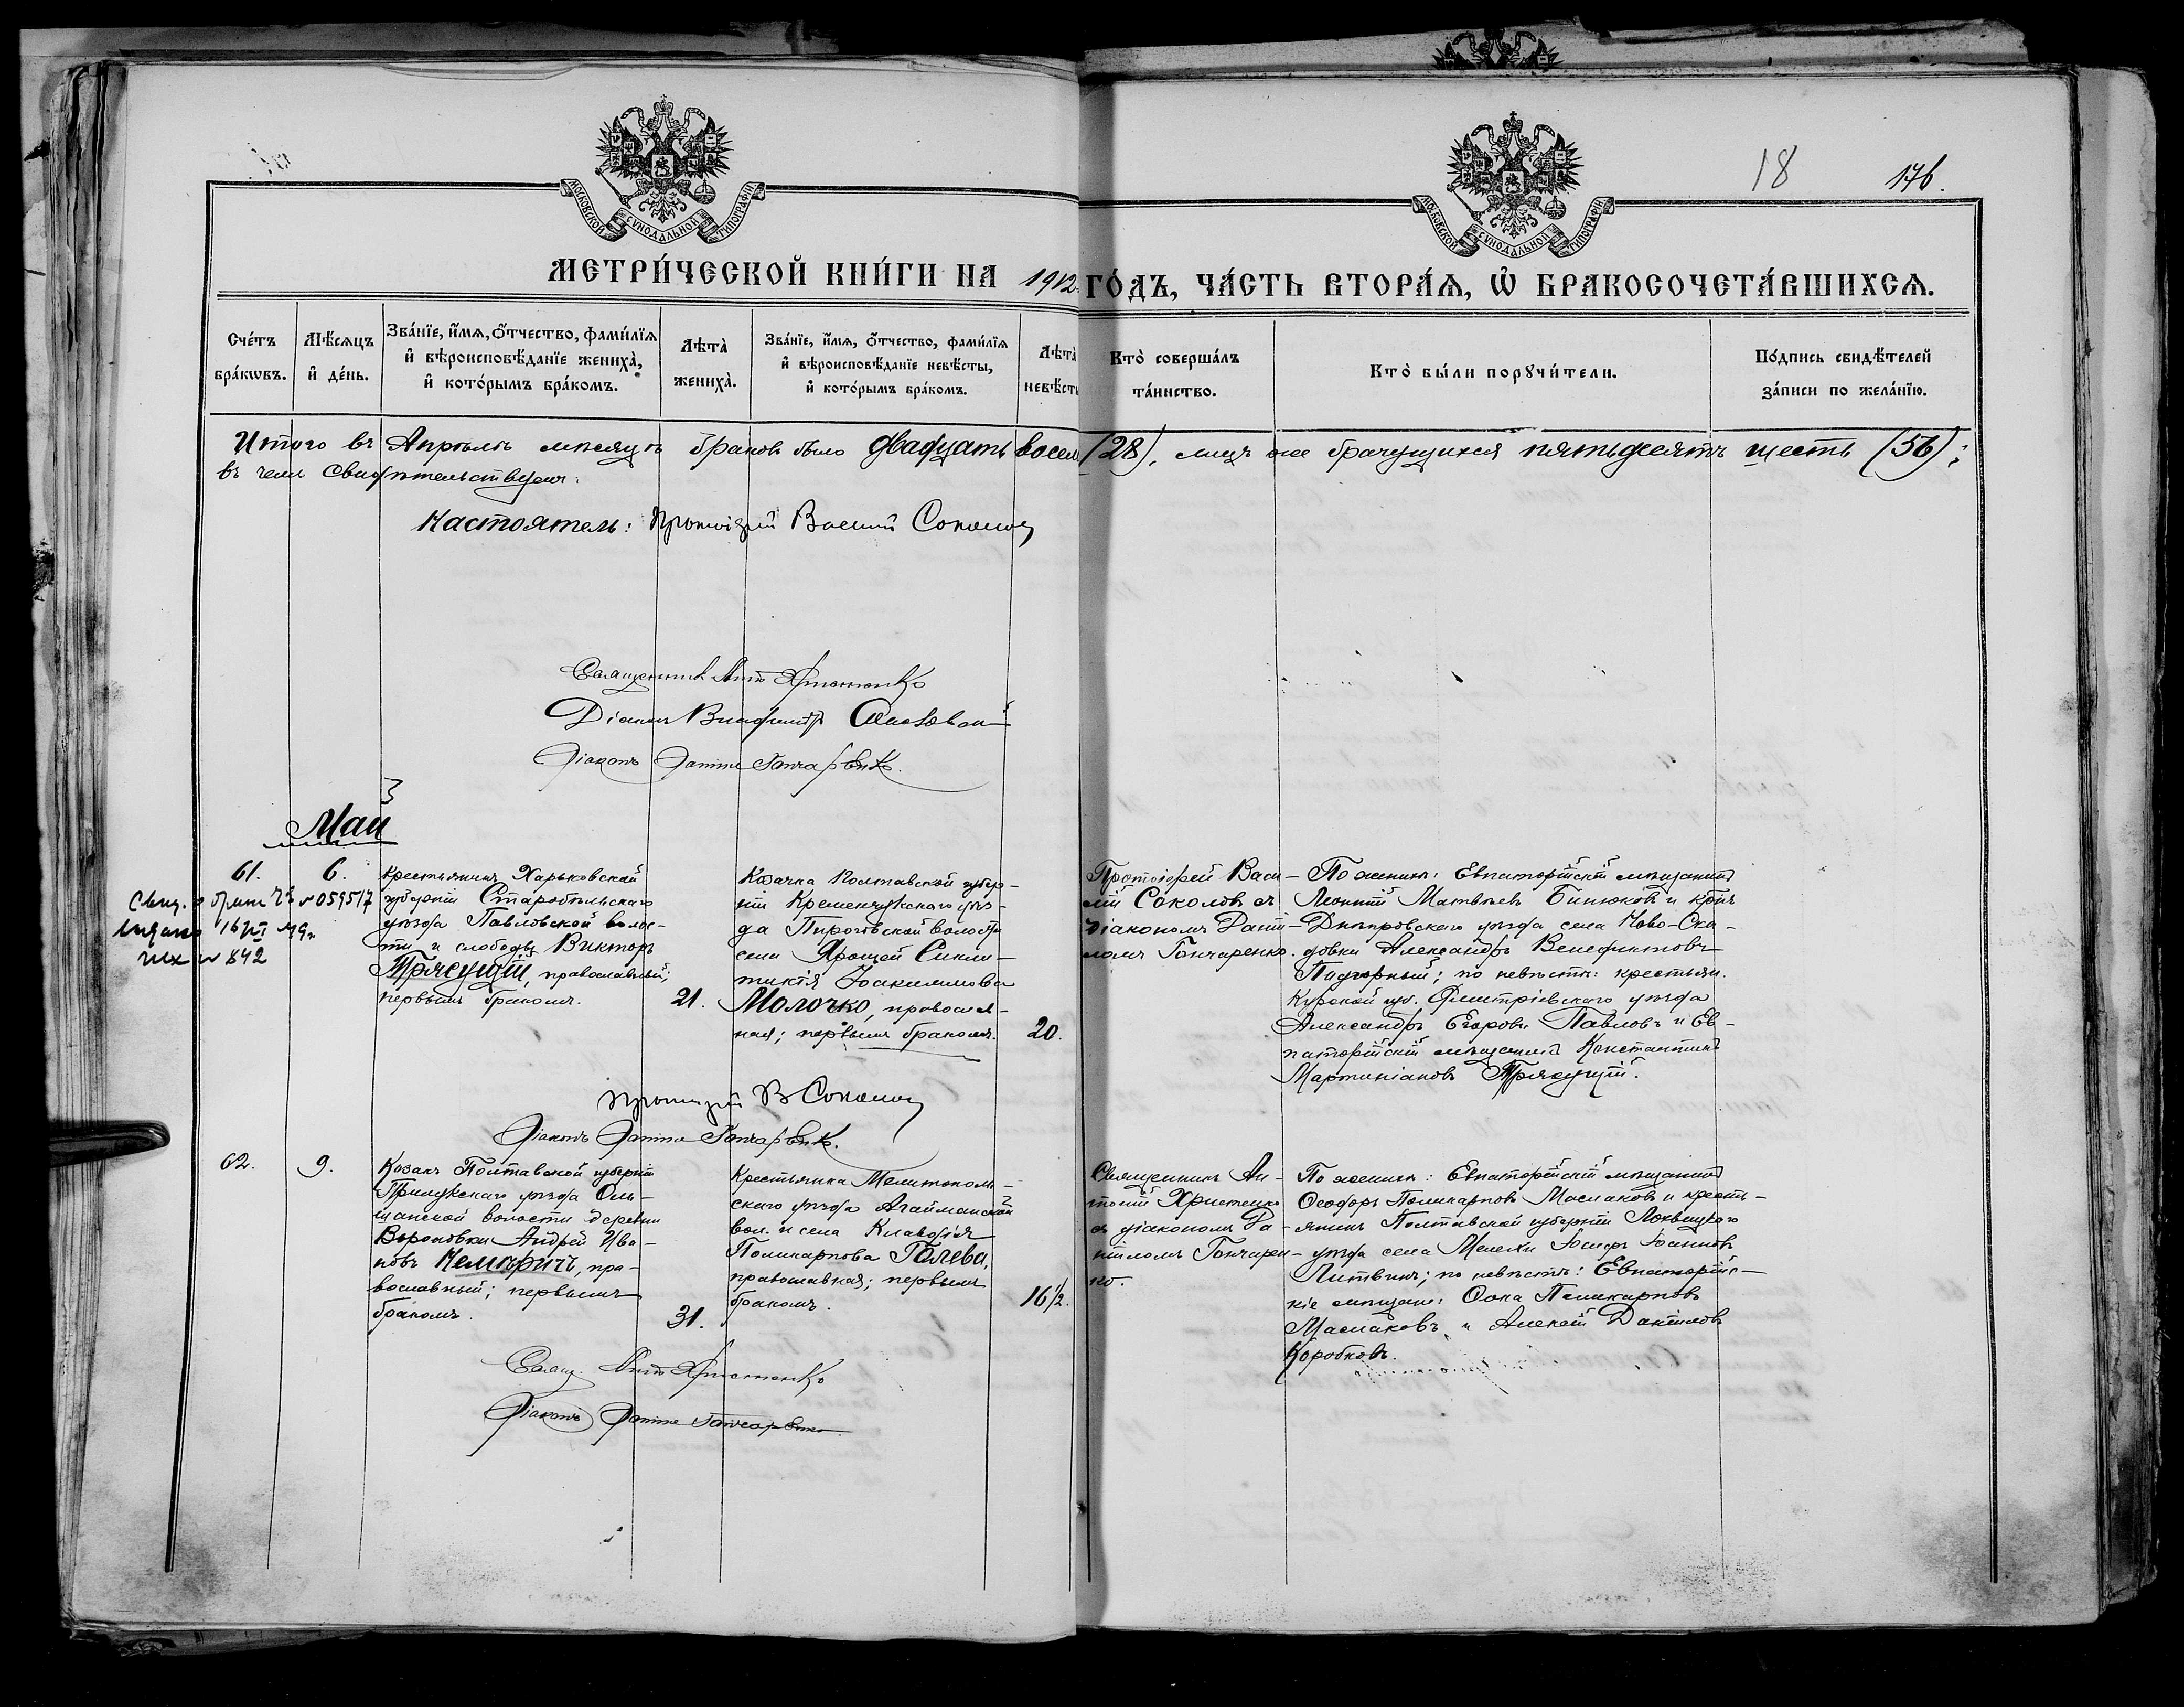 МОСКОВСКОЙ СѴНОДАЛЬНОЙ ТИПОГРАФІИ
МОСКОВСКОЙ СѴНОДАЛЬНОЙ ТИПОГРАФІИ
18 176.
МЕТРИ́ЧЕСКОЙ КНИ́ГИ НА 1912 ГО́ДЪ, ЧА́СТЬ ВТОРА́Ѧ, Ѡ҆ БРАКОСОЧЕТА́ВШИХСѦ.
Сче́тъ бра́кѡвъ.
Мѣ́сяцъ и҆ де́нь.
Зва́нїе, и҆́мѧ, ѻ҆́тчество, фами́лїѧ
и҆ вѣроисповѣ́данїе жениха̀,
и҆ кото́рымъ бра́комъ.
Лѣ́та̀ жениха̀.
Зва́нїе, и҆́мѧ, ѻ҆́тчество, фами́лїѧ
и҆ вѣроисповѣ́данїе невѣ́сты,
и҆ кото́рымъ бра́комъ.
Лѣ́та̀ невѣ́сты
Кто̀ соверша́лъ
та́инство.
Кто̀ бы́ли порꙋчи́тели.
По́дпись свидѣ́телей
за́писи по жела́нїю.
Итого въ Апрѣлѣ мѣсяцѣ браковъ было двадцать восемь (28), лицъ же брачущихся пятьдесятъ шесть (56);
въ чемъ свидѣтельствуемъ:
Настоятель: Протоіерей Василій Соколовъ
Священникъ Антоній Христенко
Діаконъ Владиміръ
Діаконъ Даніилъ Гончаренко.
Май
61.
6.
Свид. о браке № 059517
выдано 16/VI 49г.
исх № 842
Крестьянинъ Харьковской
губерніи Старобѣльскаго
уѣзда Павловской волос-
ти и слободы Викторъ
Трясущій, православный;
первымъ бракомъ.
21.
Козачка Полтавской губер-
ніи Кременчугскаго уѣз-
да Пироговской волости
села Ярощей
Іоакимова
Молочко, православ-
ная; первымъ бракомъ.
20.
Протоіерей Васи-
лій Соколовъ съ
діакономъ Дані-
ломъ Гончаренко.
По женихѣ: Евпаторійскій мѣщанинъ
Леонтій Матвѣевъ Бинюковъ и кр-нъ
Днѣпровскаго уѣзда села Ново-Ска-
довки Александръ Венедиктовъ
Подгорный; по невѣстѣ: крестьян.
Курской губ. Дмитріевскаго уѣзда
Александръ Егоровъ Павловъ и Ев-
паторійскій мѣщанинъ Константинъ
Мартиніановъ Трясущій.
Протоіерей В Соколовъ
Діаконъ Даніилъ Гончаренко.
62.
9.
Козакъ Полтавской губерніи
Прилукскаго уѣзда Оль-
шанской волости деревни
Вороновки Андрей Ива-
новъ Немиричъ, пра-
вославный; первымъ
бракомъ.
31.
Крестьянка Мелитополь-
скаго уѣзда Агайманской
вол. и села Клавдія
Поликарпова Голева,
православная; первымъ
бракомъ.
16 1/2.
Священникъ Ан-
тоній Христенко
съ діакономъ Да-
ніиломъ Гончарен-
ко.
По женихѣ: Евпаторійскій мѣщанинъ
Ѳеодоръ Поликарповъ Маслаковъ и кресть-
янинъ Полтавской губерніи Лохвицкаго
уѣзда села Мелехи Іосифъ Іоанновъ
Литвинъ; по невѣстѣ: Евпаторійс-
кіе мѣщане: Ѳома Поликарповъ
Маслаковъ и Алексій Даніиловъ
Коробковъ.
Свящ. Антоній Христенко
Діаконъ Даніилъ Гончаренко.